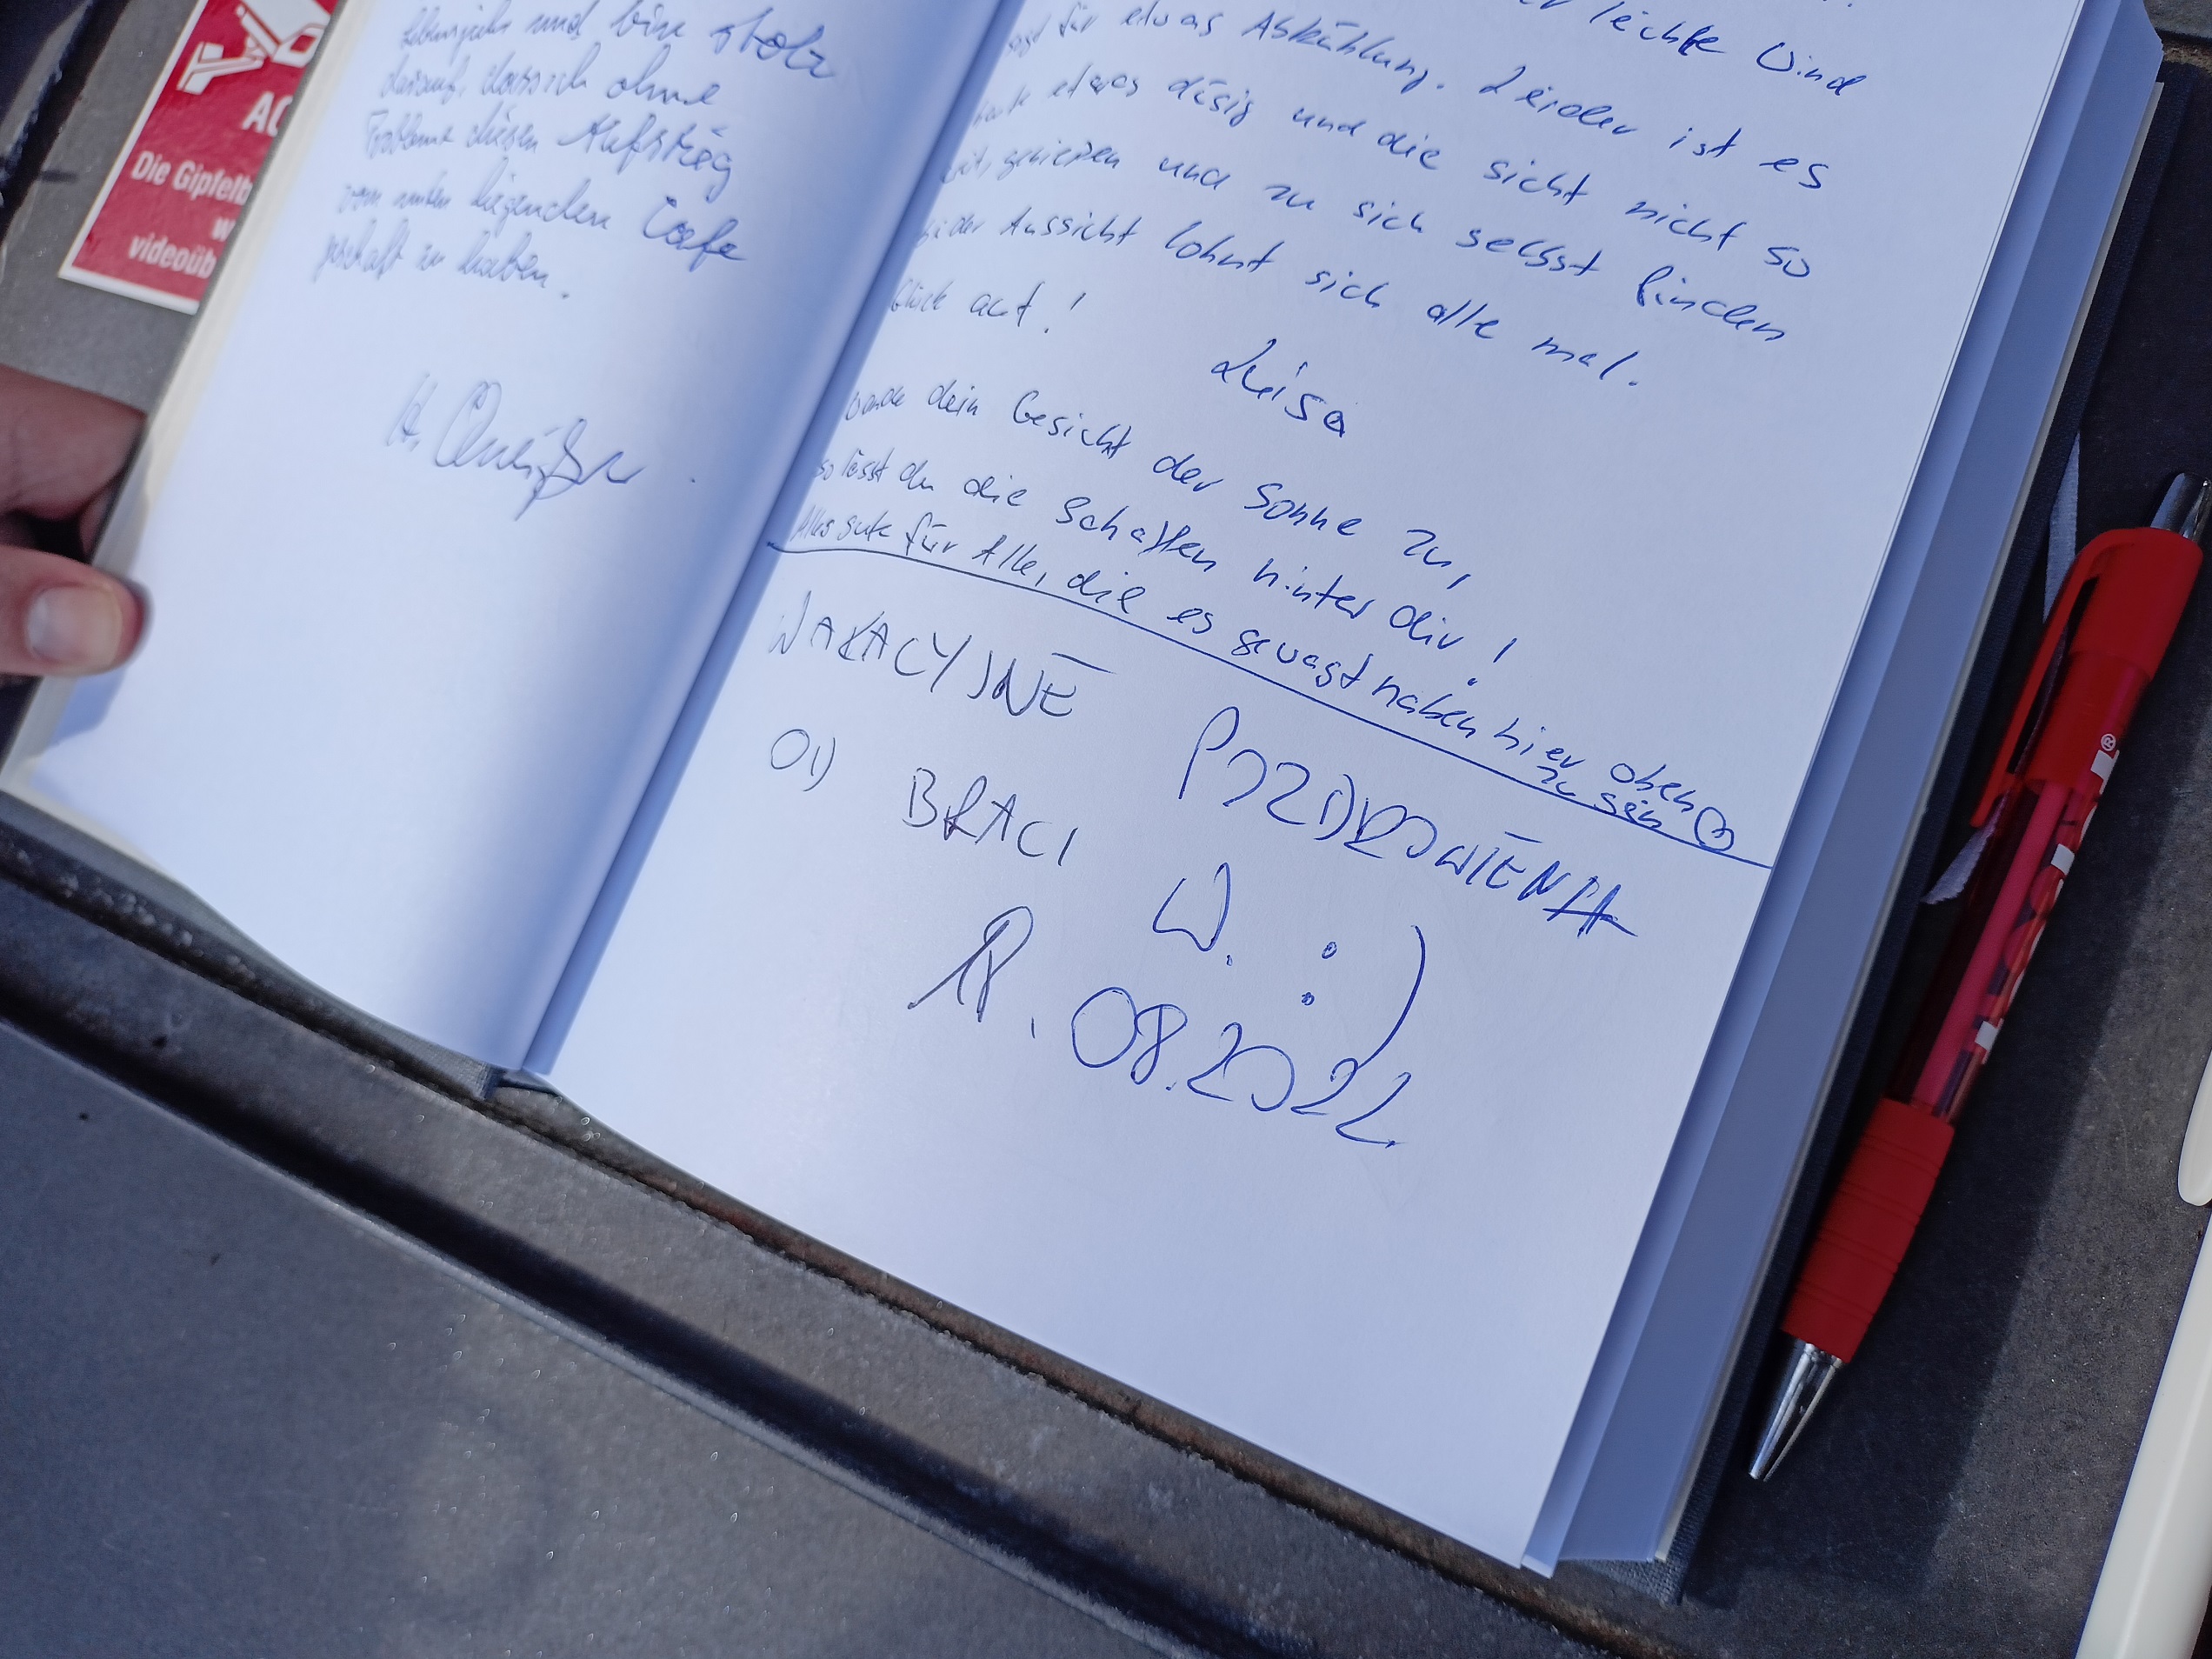 AC
Die Gipfelb
w
videoüb
und bin stolz
darauf, dass ich ohne
Probleme diesen Aufstieg
vom unten liegenden Cafe
geschafft zu haben.
H.
er leichte Wind
für etwas Abkühlung. Leider ist es
etwas diesig und die sicht nicht so
genießen und zu sich selbst finden
bei der Aussicht lohnt sich alle mal.
Glück auf!
Luisa
dein Gesicht der Sonne zu,
so lässt du die Schatten hinter dir!
Alles gute für Alle, die es gewagt haben hier oben
zu sein
WAKACYJNE POZDROWIENIA
OD BRACI W. :)
18.08.2022